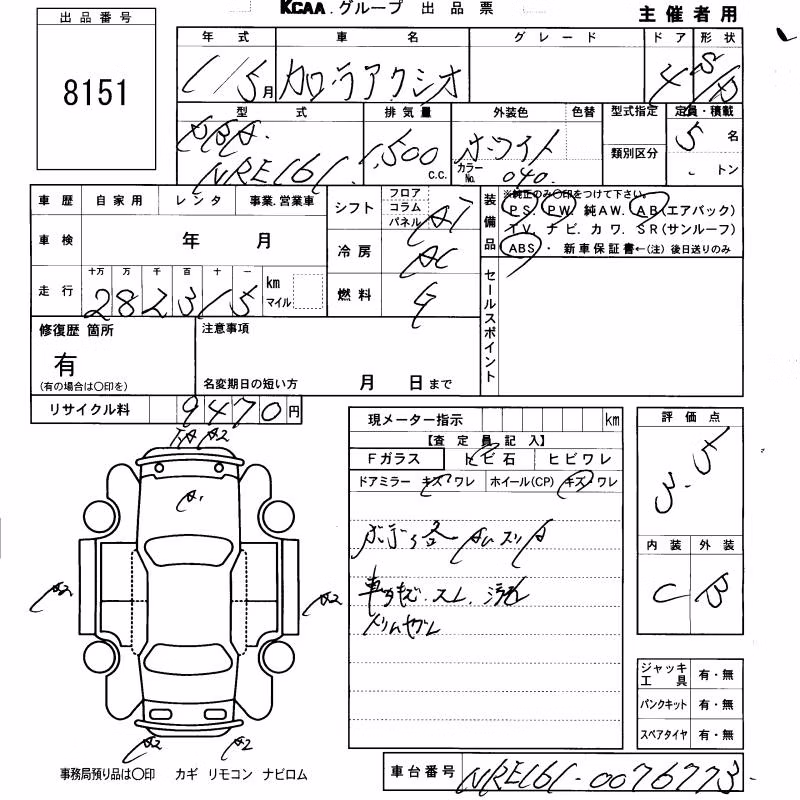 KCAA.グループ 出品票
主催者用
出品番号
8151
年式 車名 グレード ドア 形状
1/5月 カローラアクシオ 4 S/D
型式 排気量 外装色 色替 型式指定 定員・積載
DBA. 1,500 c.c. ホワイト 5 名
NRE161 カラーNo. 040. 類別区分 トン
車歴 自家用 レンタ 事業.営業車
車検 年 月
走行 十万 万 千 百 十 一
282315 km マイル
シフト フロア コラム パネル AT
冷房 AC
燃料 G
装備品
※純正のみ〇印をつけて下さい。
PS. PW. 純AW. AB(エアバック)
TV. ナビ. カワ. SR(サンルーフ)
ABS ・ 新車保証書←(注)後日送りのみ
セールスポイント
修復歴 箇所
有
(有の場合は〇印を)
注意事項
名変期日の短い方 月 日まで
リサイクル料 9470円
A2
A1
A2
A2
A2 A2
事務局預り品は〇印 カギ リモコン ナビロム
現メーター指示 km
【査定員記入】
Fガラス トビ石 ヒビワレ
ドアミラー キズ・ワレ ホイール(CP) キズ・ワレ
評価点
3.5
内装 外装
C B
ジャッキ工具 有・無
パンクキット 有・無
スペアタイヤ 有・無
車台番号 NRE161-0076773